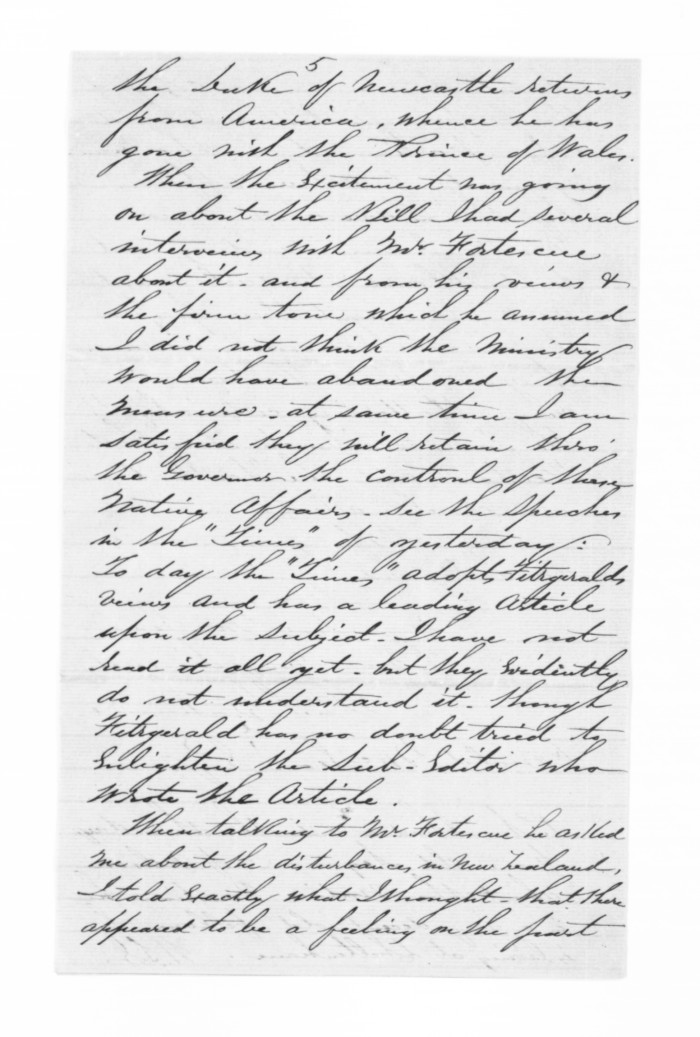 5
the Duke of Newcastle returns
from America, whence he has
gone with the Prince of Wales.
When the Excitement was going
on about the Bill I had several
interviews with Mr. Fortescue
about it - and from his views &
the firm tone which he assumed
I did not think the Ministry
would have abandoned the
Measure - at same time I am
satisfied they will retain thro'
the Governor the controul of these
Native Affairs - see the Speeches
in the "Times" of yesterday:
To day the "Times" adopts Fitzgeralds
views and has a leading Article
upon the subject - I have not
read it all yet - but they Evidently
do not understand it - though
Fitzgerald has no doubt tried to
Enlighten the Sub-Editor who
wrote the Article.
When talking to Mr. Fortescue he asked
me about the disturbances in New Zealand,
I told Exactly what I thought - that there
appeared to be a feeling on the part